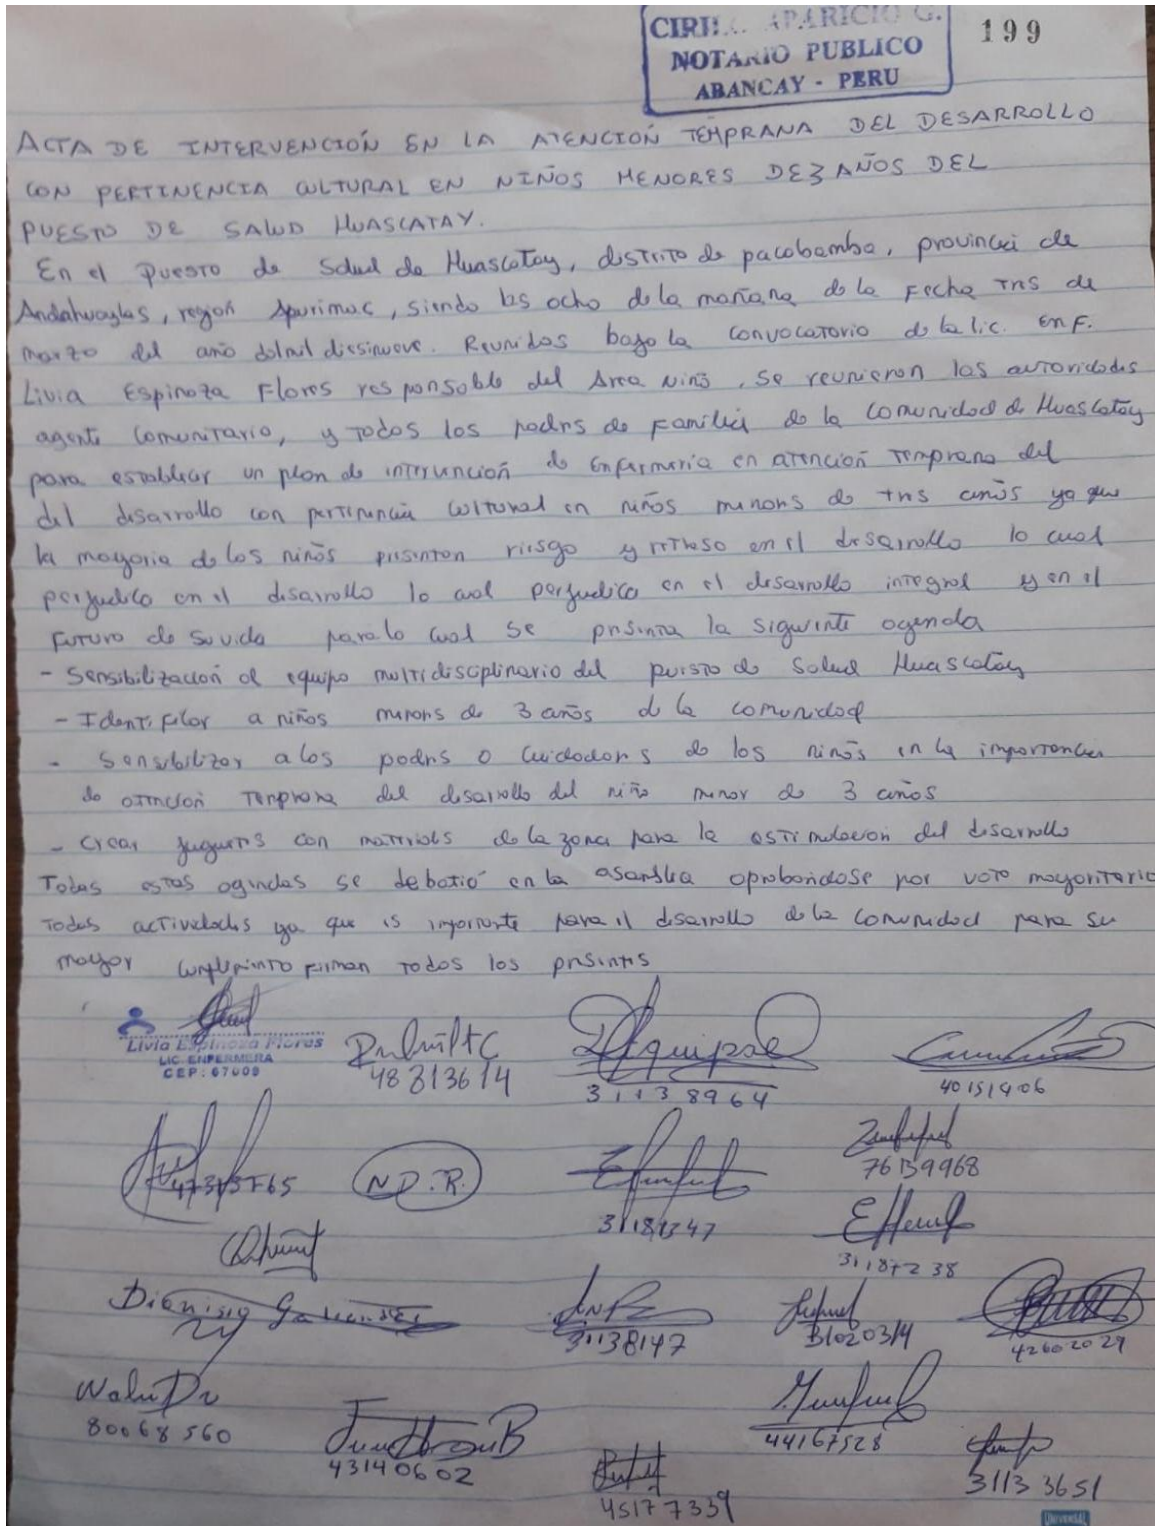 APARICIO G.
NOTARIO PUBLICO
ABANCAY - PERU
199
ACTA DE INTERVENCIÓN EN LA ATENCIÓN TEMPRANA DEL DESARROLLO
CON PERTINENCIA CULTURAL EN NIÑOS MENORES DE 3 AÑOS DEL
PUESTO DE SALUD HUASCATAY.
En el Puesto de Salud de Huascatay, distrito de pacobamba, provincia de
Andahuaylas, región Apurimac, siendo las ocho de la mañana de la Fecha tres de
marzo del año dolmil diesinueve. Reunidos bajo la convocatorio de la lic. EnF.
Livia Espinoza Flores responsable del Area Niño, se reunieron las autoridades
agente comunitario, y todos los padres de familia de la comunidad de Huascatay
para establecer un plan de intervención de Enfermeria en atención temprana del
del desarrollo con pertinencia cultural en niños menores de tres años ya que
la mayoria de los niños presentan riesgo y retraso en el desarrollo lo cual
perjudica en el desarrollo lo cual perjudica en el desarrollo integral y en el
Futuro de su vida para lo cual se presenta la siguiente agenda
- Sensibilización al equipo multidisciplinario del puesto de Salud Huascatay
- Identificar a niños menores de 3 años de la comunidad
- Sensibilizar a los padres o cuidadores de los niños en la importancia
de atención temprana del desarrollo del niño menor de 3 años
- Crear juguetes con materiales de la zona para la estimulación del desarrollo
Todas estas agendas se debatió en la asamblea aprobandose por voto mayoritario
todas actividades ya que es importante para el desarrollo de la comunidad para su
mayor cumplimiento firman todos los presentes
Livia Espinoza Flores
LIC. ENFERMERA
CEP: 67009
48813614
31138964
40151406
N.D.R.
76139968
31187238
Dionisio
31138147
42602029
80068560
43140602
44167528
45177339
31133651
UNIVERSAL